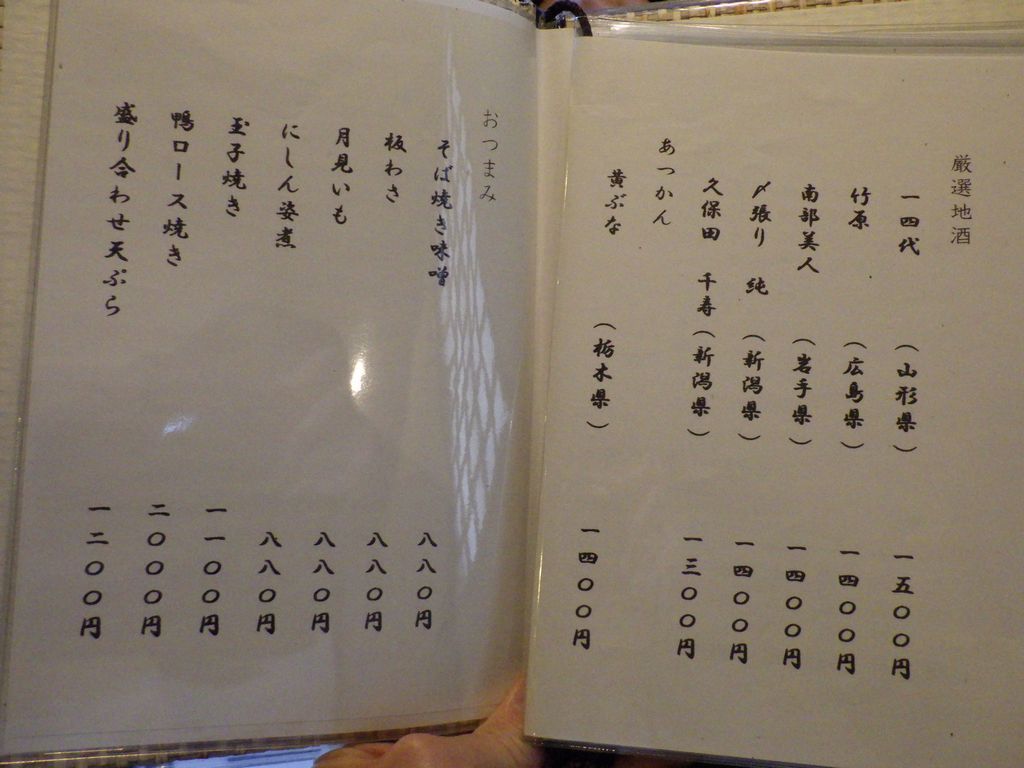 厳選地酒
一四代 (山形県) 一五〇〇円
竹原 (広島県) 一四〇〇円
南部美人 (岩手県) 一四〇〇円
〆張り 純 (新潟県) 一四〇〇円
久保田 千寿 (新潟県) 一三〇〇円
あつかん
黄ぶな (栃木県) 一四〇〇円
おつまみ
そば焼き味噌 八八〇円
板わさ 八八〇円
月見いも 八八〇円
にしん姿煮 八八〇円
玉子焼き 一一〇〇円
鴨ロース焼き 二〇〇〇円
盛り合わせ天ぷら 一二〇〇円